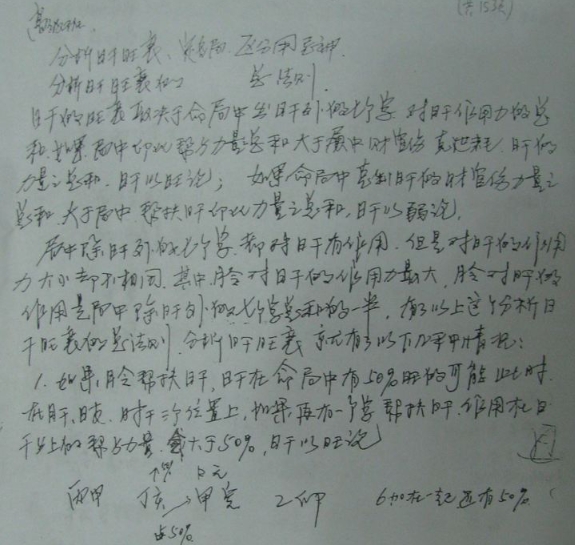 (共15页)
高级班
分析日干旺衰、定格局、区分用忌神
分析日干旺衰的 总法则
日干的旺衰取决于命局中出日干外的七个字对日干作用力的总
和,如果局中印比帮扶力量总和大于局中财官伤克泄耗日干的
力量之总和,日干以旺论;如果命局中克制日干的财官伤力量之
总和大于局中帮扶日干印比力量之总和,日干以弱论。
局中除日干外的七个字,都对日干有作用,但是对日干的作用
力大小却不相同,其中月令对日干的作用力最大,月令对日干的
作用是局中除日干外的七个字总和的一半,有了以上这个分析日
干旺衰的总法则,分析日干旺衰就有了以下几种情况:
1. 如果月令帮扶日干,日干在命局中有50%旺的可能,此时
在月干、日支、时干三个位置上,如果再有一个字帮扶日干,作用在日
干上的帮扶力量大于50%,日干以旺论
日元
丙申 丁亥→甲寅 乙卯 加在一起还有50%
占50%